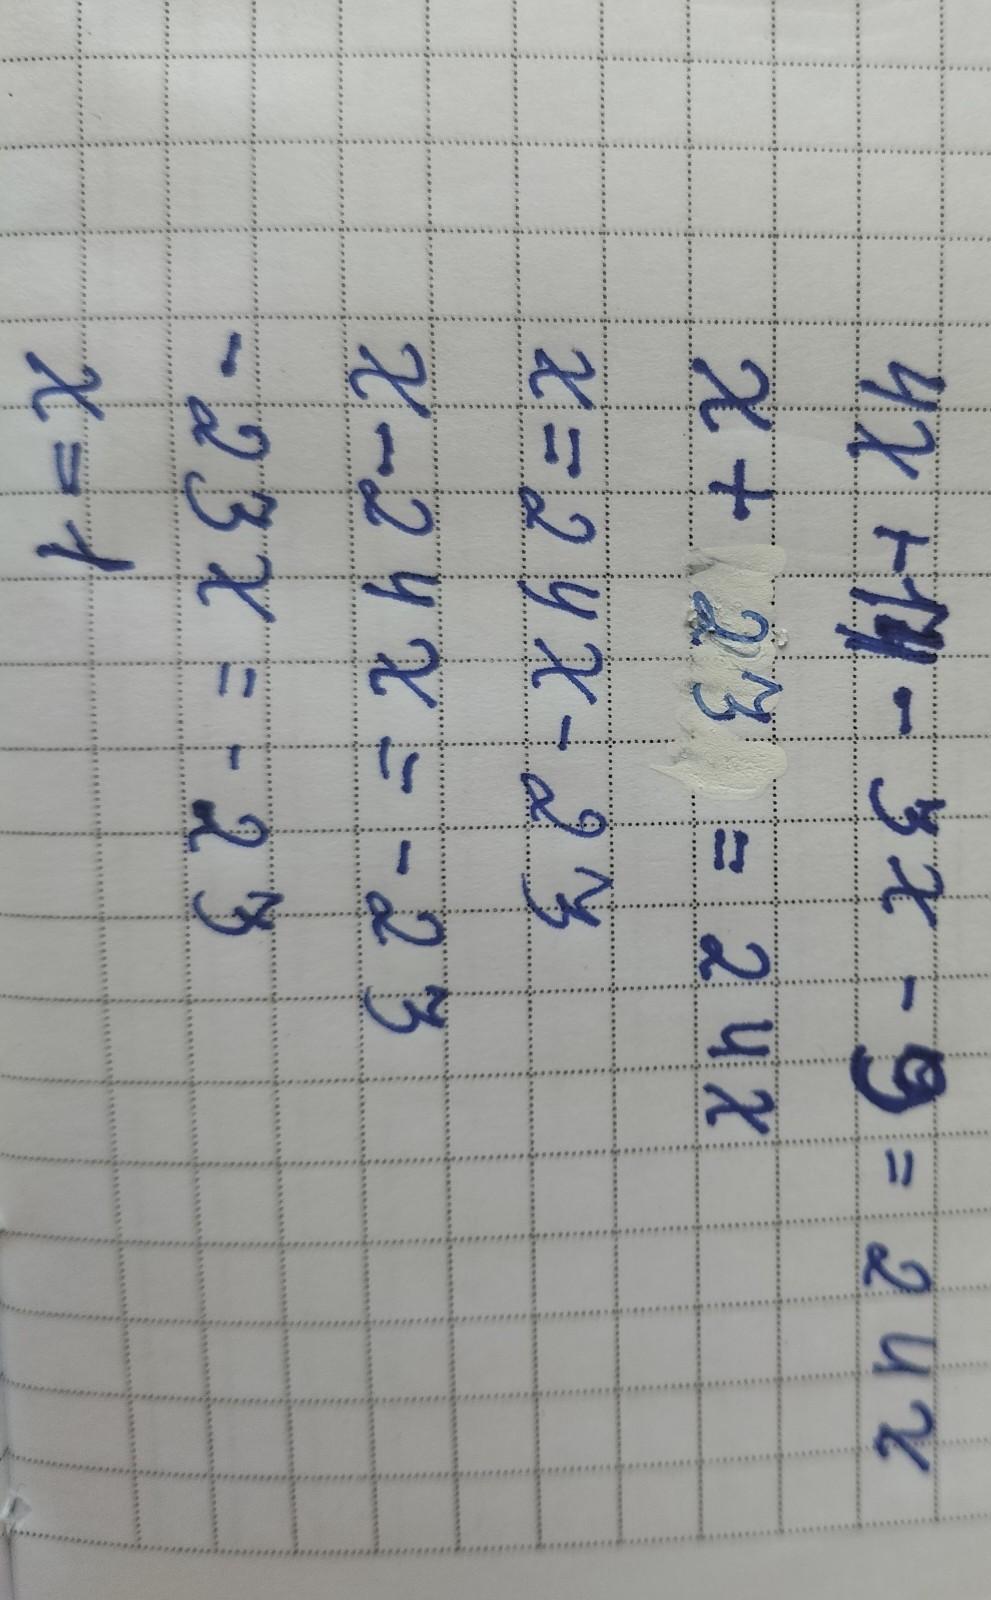 4x + 14 - 3x - 9 = 24x
x + 23 = 24x
x = 24x - 23
x - 24x = - 23
- 23x = - 23
x = 1